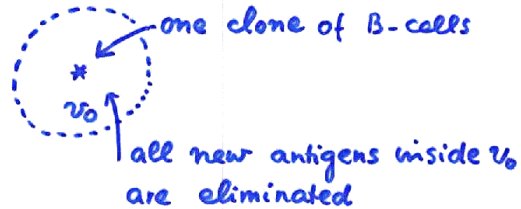 one clone of B-cells
*
v₀
all new antigens inside v₀
are eliminated